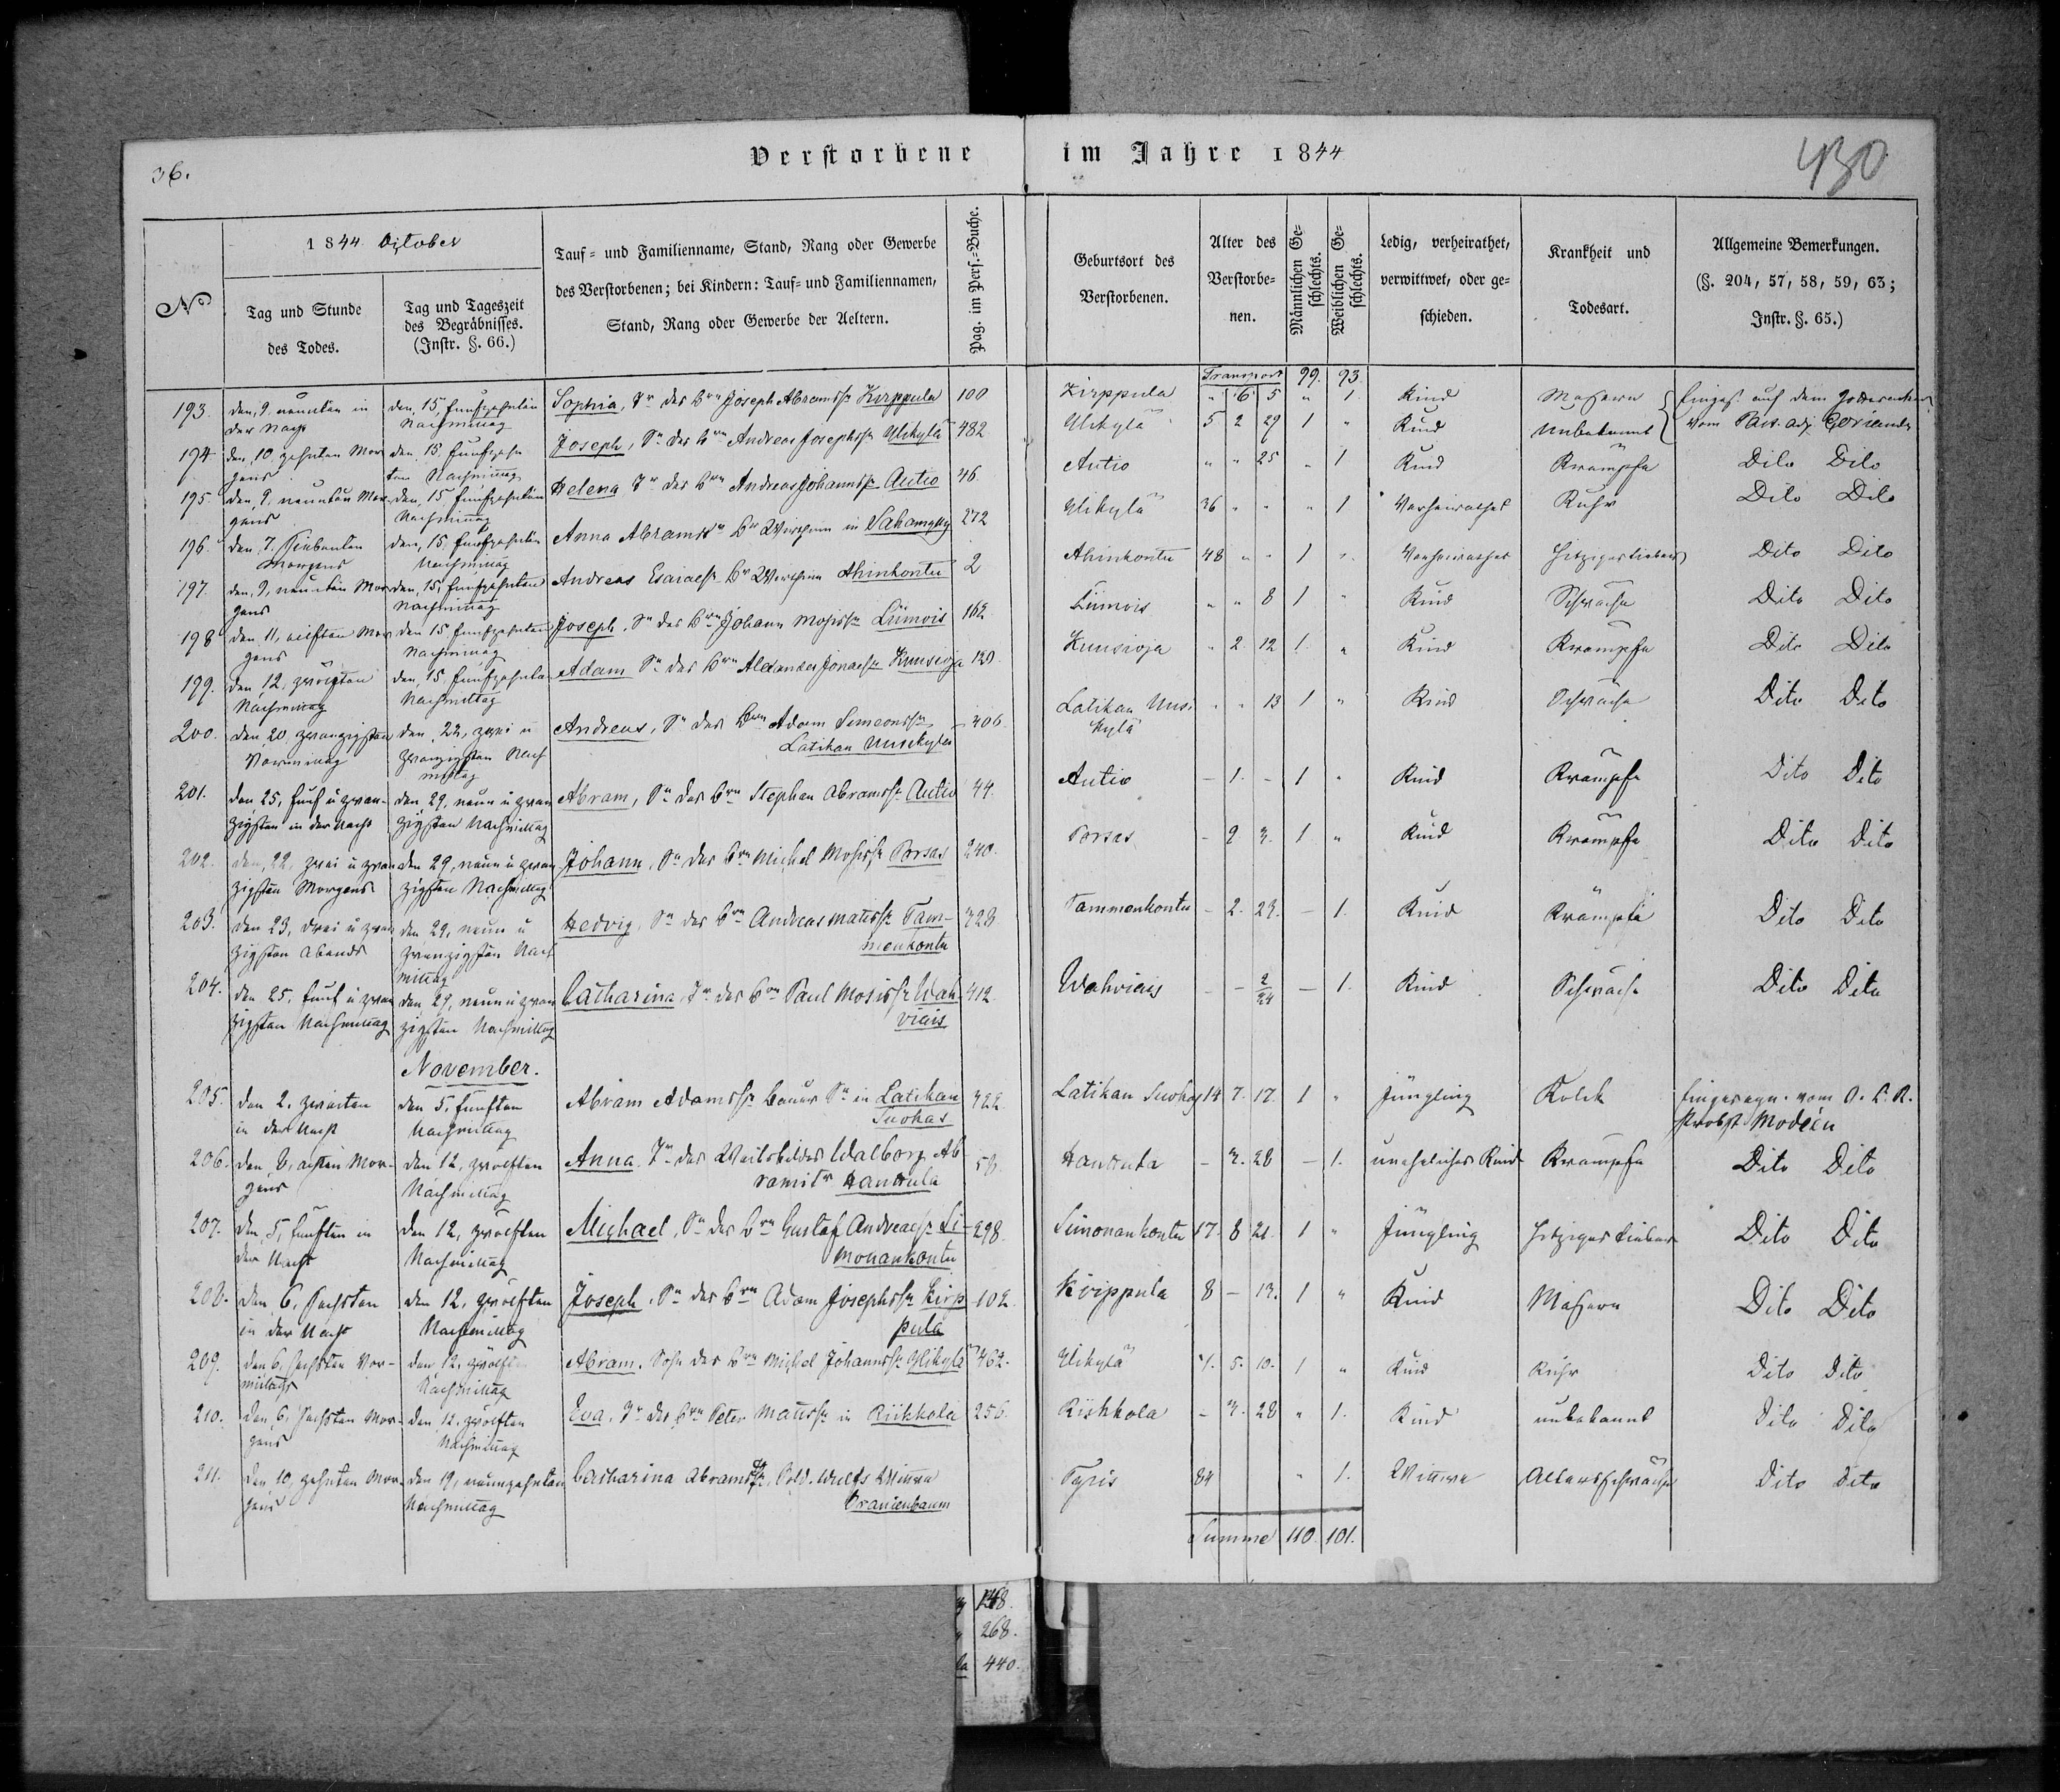 36.
Verstorbene im Jahre 1844
430
No
1844. October
Tag und Stunde des Todes.
Tag und Tageszeit des Begräbnisses. (Instr. §. 66.)
Tauf- und Familienname, Stand, Rang oder Gewerbe des Verstorbenen; bei Kindern: Tauf- und Familiennamen, Stand, Rang oder Gewerbe der Aeltern.
Pag. im Pers.-Buche.
Geburtsort des Verstorbenen.
Alter des Verstorbenen.
Männlichen Geschlechts.
Weiblichen Geschlechts.
Ledig, verheirathet, verwittwet, oder geschieden.
Krankheit und Todesart.
Allgemeine Bemerkungen. (§. 204, 57, 58, 59, 63; Instr. §. 65.)
Transport 99. 93.
193. den 9. neunten in der Nacht den 15. fünfzehnten Nachmittag Sophia, Tr des Brn Joseph Abramssn Kirppula 100 Kirppula " 6 5 " 1. Kind Masern Einges. auf dem Gottesacker
194 den 10. zehnten Morgens den 15. fünfzehnten Nachmittag Joseph, Sn des Brn Andreas Josephssn Ylikylä 482 Ylikylä 5 2 29 1 " Kind Unbekannt vom Past. adj.
195 den 9. neunten Morgens den 15 fünfzehnten Nachmittag Helena Tr des Brn Andreas Johannssn Autio 46 Autio " " 25 " 1 Kind Krämpfe Dito Dito
196. den 7. Siebenten Morgens den 15. fünfzehnten Nachmittag Anna Abramstr Br Wirthin in 272 Ylikylä 36 " " " 1 Verheirathet Ruhr Dito Dito
197. den 9. neunten Morgens den 15. fünfzehnten Nachmittag Andreas Esaiassn Br Ahinkontu 2 Ahinkontu 48 " " 1 " Verheirathet Hitziges Fieber Dito Dito
198 den 11. eilften Morgens den 15 fünfzehnten Nachmittag Joseph, Sn des Brn Johann Mosissn Liimois 162 Liimois " " 8 1 " Kind Schwäche Dito Dito
199. den 12. zwölften Nachmittag den 15. fünfzehnten Nachmittag Adam Sn des Brn Alexander Jonassn Kuusioja 120. Kuusioja " 2 12 1. " Kind Krämpfe Dito Dito
200. den 20 zwanzigsten Vormittag den 22, zwei u zwanzigsten Nachmittag Andreas, Sn des Brn Adam Simeonssn Latikan Uusikylä 306. Latikan Uusikylä " " 13 1 " Kind Schwäche Dito Dito
201. den 25, fünf u zwanzigsten in der Nacht den 29, neun u zwanzigsten Nachmittag Abram, Sn des Brn Stephan Abramssn Autio 44. Autio - 1. - 1 " Kind Krämpfe Dito Dito
202. den 22, zwei u zwanzigsten Morgens den 29, neun u zwanzigsten Nachmittag Johann, Sn des Brn Michel Mosissn Porsas 240. Porsas - 2 3. 1 " Kind Krämpfe Dito Dito
203. den 23, drei u zwanzigsten Abends den 29, neun u zwanzigsten Nachmittag Hedvig, Sn des Brn Andreas Matssn Tammenkontu 328 Tammenkontu - 2. 23. - 1. Kind Krämpfe Dito Dito
204. den 25, fünf u zwanzigsten Nachmittag den 29, neun u zwanzigsten Nachmittag Catharina, Tr des Brn Paul Mosissn Wahviais 412. Wahviais - - 2/24 - 1. Kind Schwäche Dito Dito
November.
205. den 2. zweiten in der Nacht den 5. fünften Nachmittag Abram Adamssn Bauer Sn in Latikan Suokas 322. Latikan Suokas 14 7. 17. 1 " Jüngling Kolik Eingesegn. vom O. C. R. Probst Modéen
206. den 8. achten Morgens den 12, zwölften Nachmittag Anna Tr des Weibsbildes Walborg Abramstr Hantula 58 Hantula - 3. 28 - 1. uneheliches Kind Krämpfe Dito Dito
207. den 5, fünften in der Nacht den 12, zwölften Nachmittag Michael, Sn des Brn Gustaf Andreassn Simonankontu 298. Simonankontu 17. 8 21. 1 " Jüngling Hitziges Fieber Dito Dito
208. den 6. Sechsten in der Nacht den 12. zwölften Nachmittag Joseph, Sn des Brn Adam Josephssn Kirppula 102. Kirppula 8 - 13. 1 " Kind Masern Dito Dito
209. den 6. sechsten Vormittags den 12. zwölften Nachmittag Abram, Sohn des Brn Michel Johannssn Ylikylä 462. Ylikylä 1. 5. 10. 1 " Kind Ruhr Dito Dito
210. den 6. sechsten Morgens den 12. zwölften Nachmittag Eva, Tr des Brn Peter Matssn in Riikkola 256. Riikkola - 3. 28 " 1. Kind unbekannt Dito Dito
211. den 10, zehnten Morgens den 19, neunzehnten Nachmittag Catharina Abramstr, Sold. Wittwe Oranienbaum Tyris 84 " 1. Wittwe Altersschwäche Dito Dito
Summe 110. 101.
148.
268.
440.